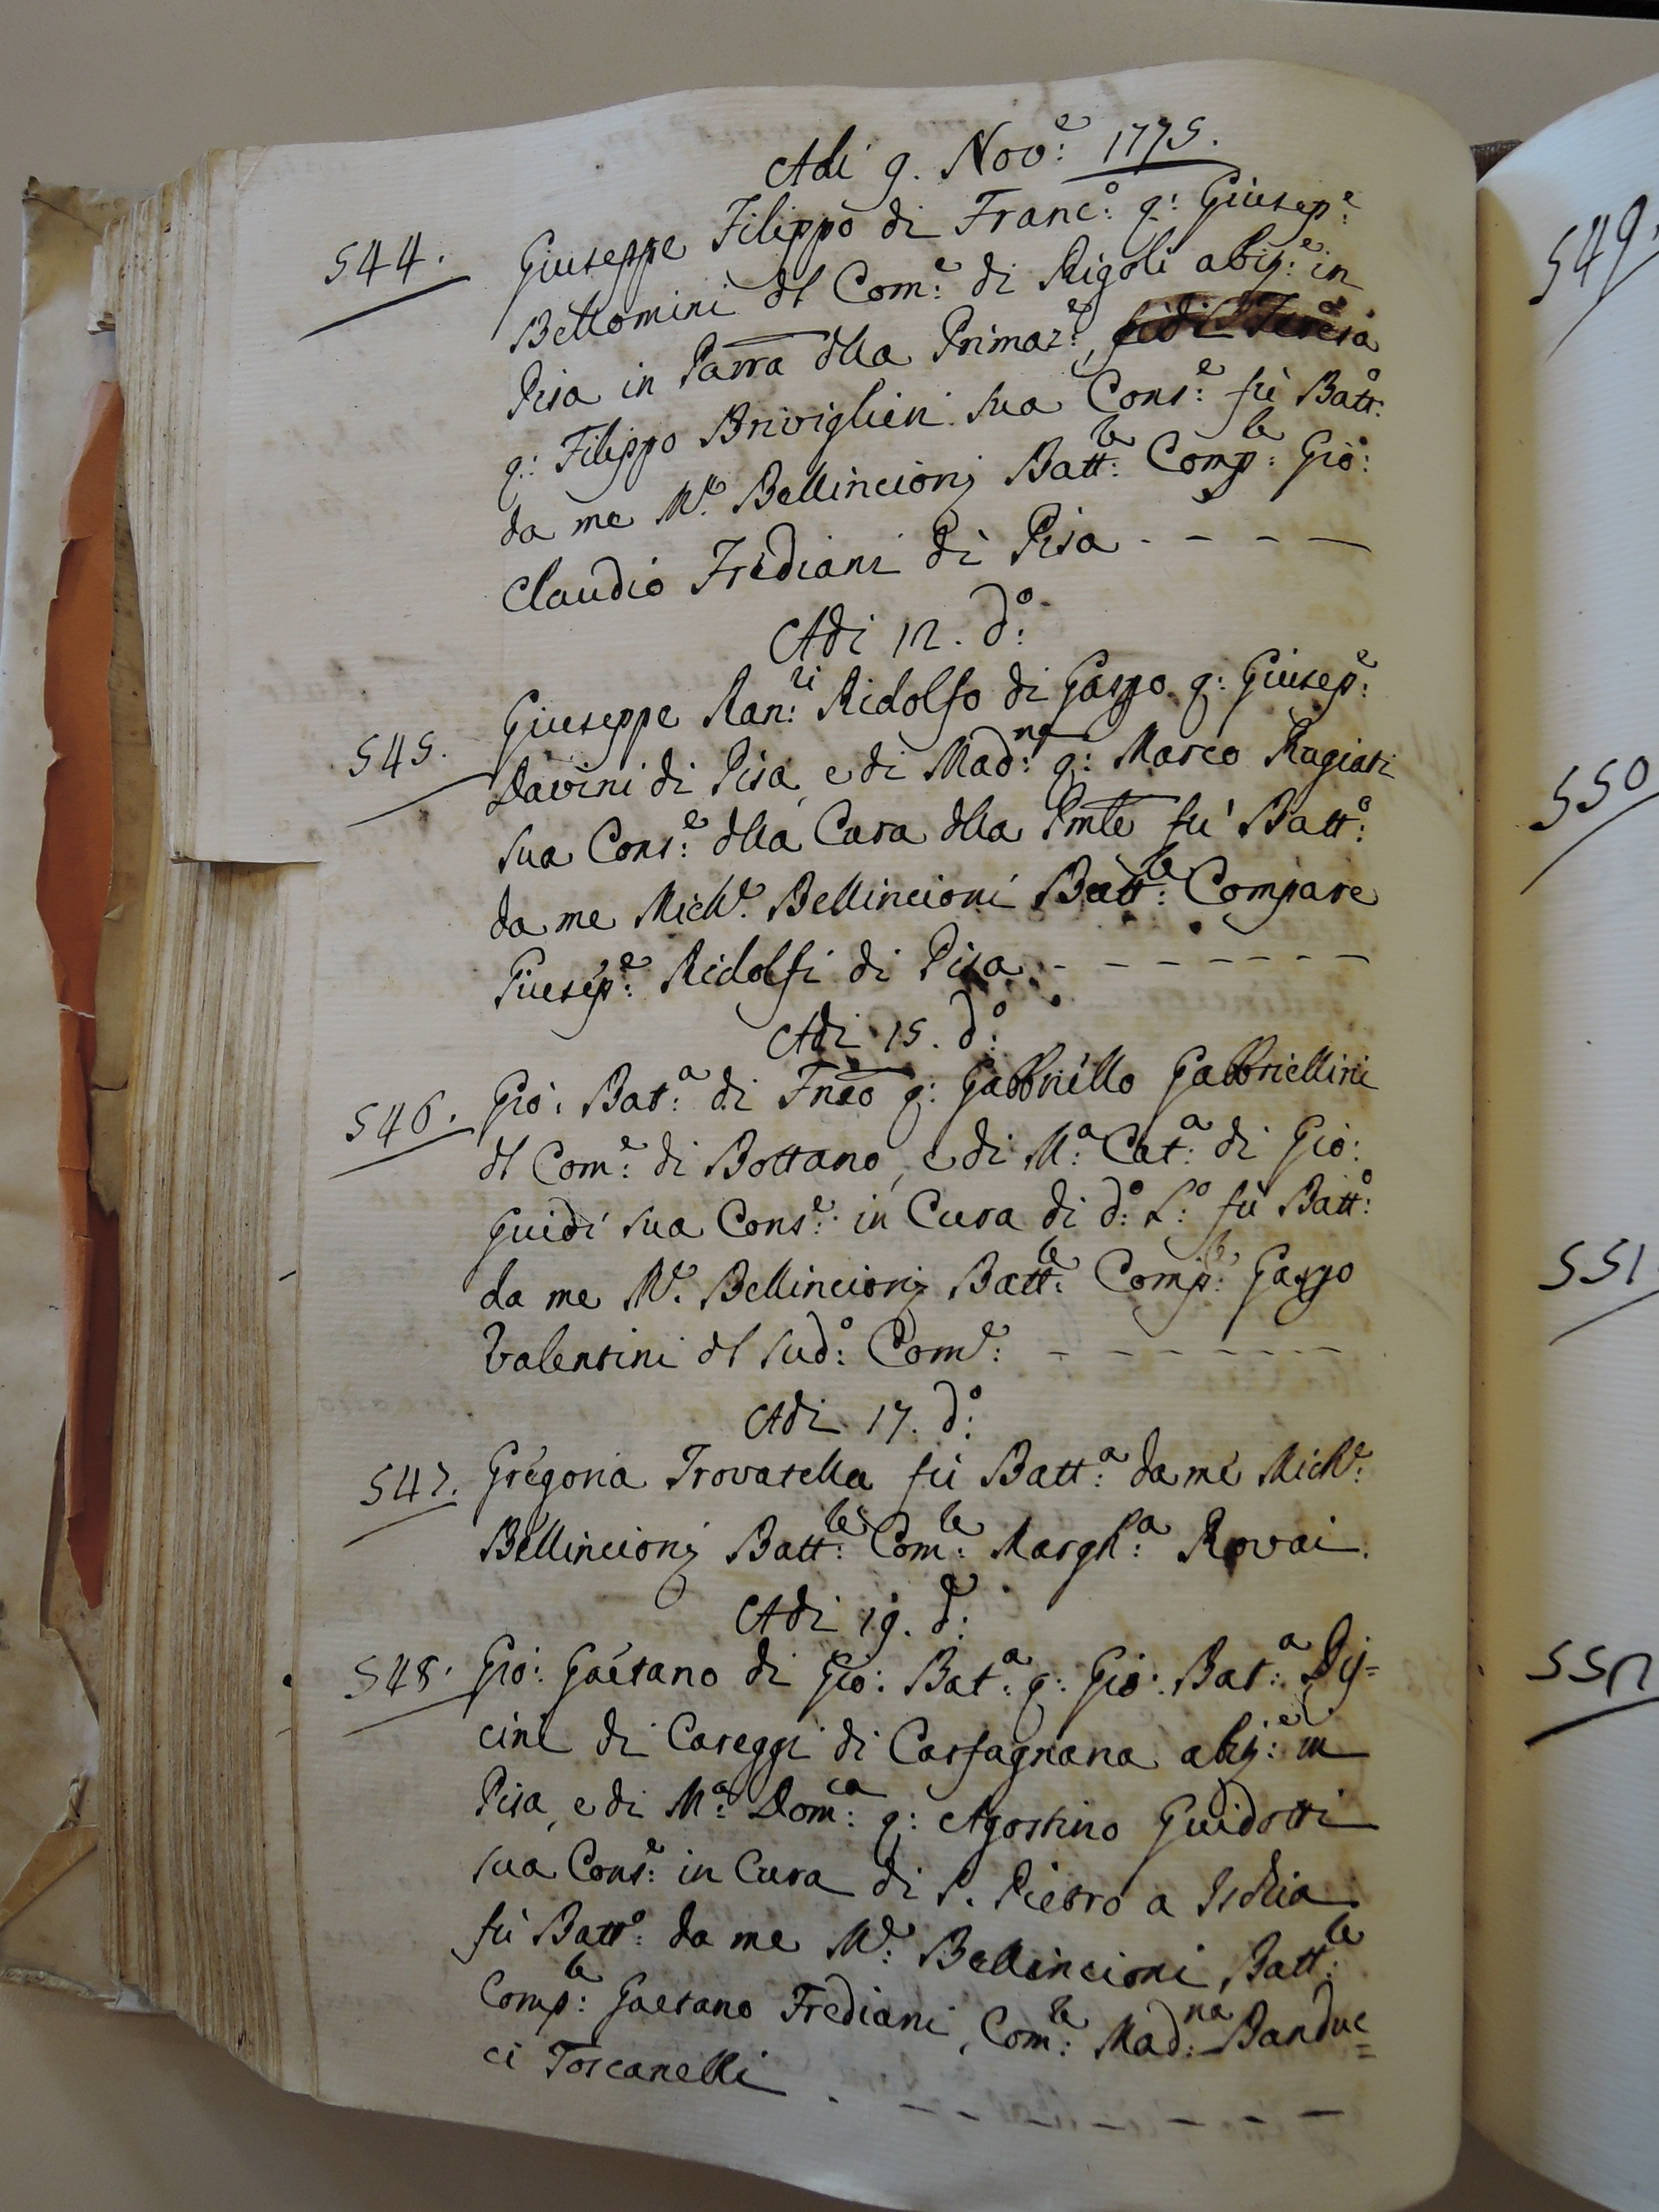 Adi 9. Nov:e 1775.
544. Giuseppe Filippo di Franc:o q: Giusep:e
Bellomini dl Com:e di Rigoli abip:e in
Pisa in Parra dlla Primaz:e, e di Teresa
q: Filippo Briviglieri sua Cons:e fù Batt:o
da me M.le Bellincionj Batt:le Comp:le Gio:
Claudio Frediani di Pisa - - - -
Adi 12. d:o
545. Giuseppe Ran:ri Ridolfo di Gasp.o q: Giusep:e
Davini di Pisa, e di Mad:na q: Marco Rugiati
sua Cons:e dlla Cura dlla Pmle fù Batt:o
da me Mich.e Bellincioni Batt:le Compare
Giusep:e Ridolfi di Pisa - - - - - - -
Adi 15. d:o
546. Gio: Bat:a di Frãco q: Gabbriello Gabbriellini
dl Com:e di Bottano, e di M:a Cat:a di Gio:
Guidi sua Cons:e in Cura di d:o L:o fù Batt:o
da me M.e Bellincionj Batt:le Comp:le Gaspo
Valentini dl sud:o Com:e - - - - - - -
Adi 17. d:o
547. Gregoria Trovatella fù Batt:a da me Mich:e
Bellincionj Batt:le Com:le Margh:a Rovai.
Adi 19. d:o
548. Gio: Gaetano di Gio: Bat:a q: Gio: Bat:a
cini di Careggi di Carfagnana abip:e in
Pisa, e di M:a Dom:ca q: Agostino Guidotti
sua Cons:e in Cura di S. Pietro a Ischia
fù Batt:o da me M.e: Bellincioni Batt:le
Comp:le Gaetano Frediani, Com:le Mad:na Banduc=
ci Toscanelli - - - - - - - -
549.
550
551
552